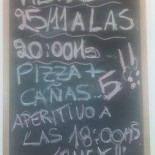 25/11 A LAS
20:00HS
PIZZA +
CAÑAS 5!!
APERITIVO A
LAS 18:00HS